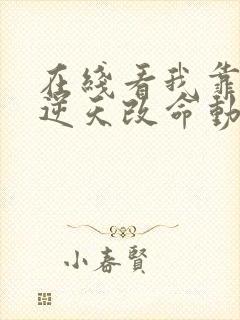 在綫看我靠
逆天改命動
小春賢